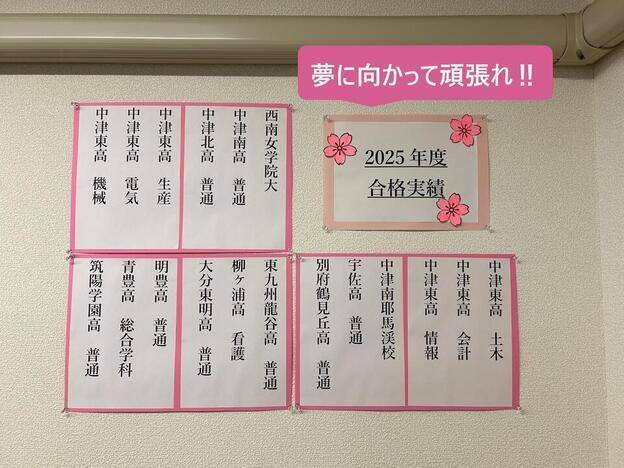 夢に向かって頑張れ!!
2025年度
合格実績
西南女学院大
中津南高 普通
中津北高 普通
中津東高 生産
中津東高 電気
中津東高 機械
中津東高 土木
中津東高 会計
中津東高 情報
中津南耶馬渓校
宇佐高 普通
別府鶴見丘高 普通
東九州龍谷高 普通
柳ヶ浦高 看護
大分東明高 普通
明豊高 普通
青豊高 総合学科
筑陽学園高 普通